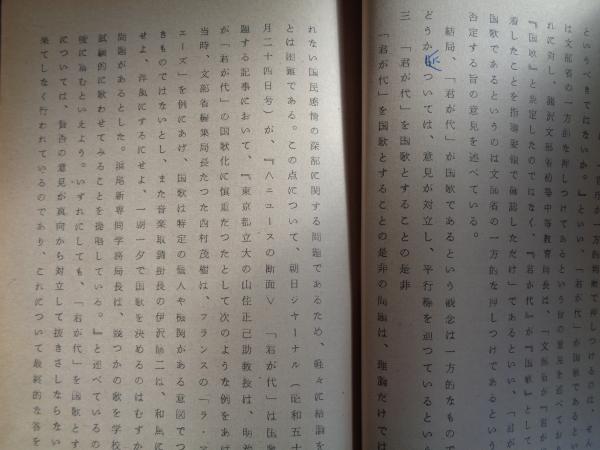 というべきではないか。』といい、「君が代」が国歌であると
は文部省の一方的な押しつけであるという旨の意見を述べて
れに対し、諸沢文部省初等中等教育局長は、「文部省が『君が
『国歌』と決定したのではなく、『君が代』が『国歌』として
着したことを指導要領で確認しただけ」であるといい、「君が
国歌であるというのは文部省の一方的な押しつけであるという
否定する旨の意見を述べている。
結局、「君が代」が国歌であるという観念は一方的なもので
どうかについては、意見が対立し、平行線を辿つているという
三 「君が代」を国歌とすることの是非
「君が代」を国歌とすることの是非の問題は、理論だけでは
れない国民感情の深部に関する問題であるため、軽々に結論を
とは困難である。この点について、朝日ジャーナル(昭和五十
月二十四日号)が、『〈ニュースの断面〉「君が代」は国
題する記事において、『東京都立大の山住正己助教授は、明治
が「君が代」の国歌化に慎重だつたとして次のような例をあげ
当時、文部省編集局長だつた西村茂樹は、フランスの「ラ・マ
エーズ」を例にあげ、国歌は特定の個人や機関がある意図でつ
きものではないとし、また音楽取調掛長の伊沢修二は、和風に
せよ、洋風にするにせよ、一朝一夕で国歌を決めるのはむずか
問題があるとした。浜尾新専門学務局長は、幾つかの歌を学校
試験的に歌わせてみることを提唱している。』と述べているの
唆に富むといえよう。いずれにしても、「君が代」を国歌とす
については、賛否の意見が真向から対立して抜きさしならない
果てしなく行われているのであり、これについて最終的な答を